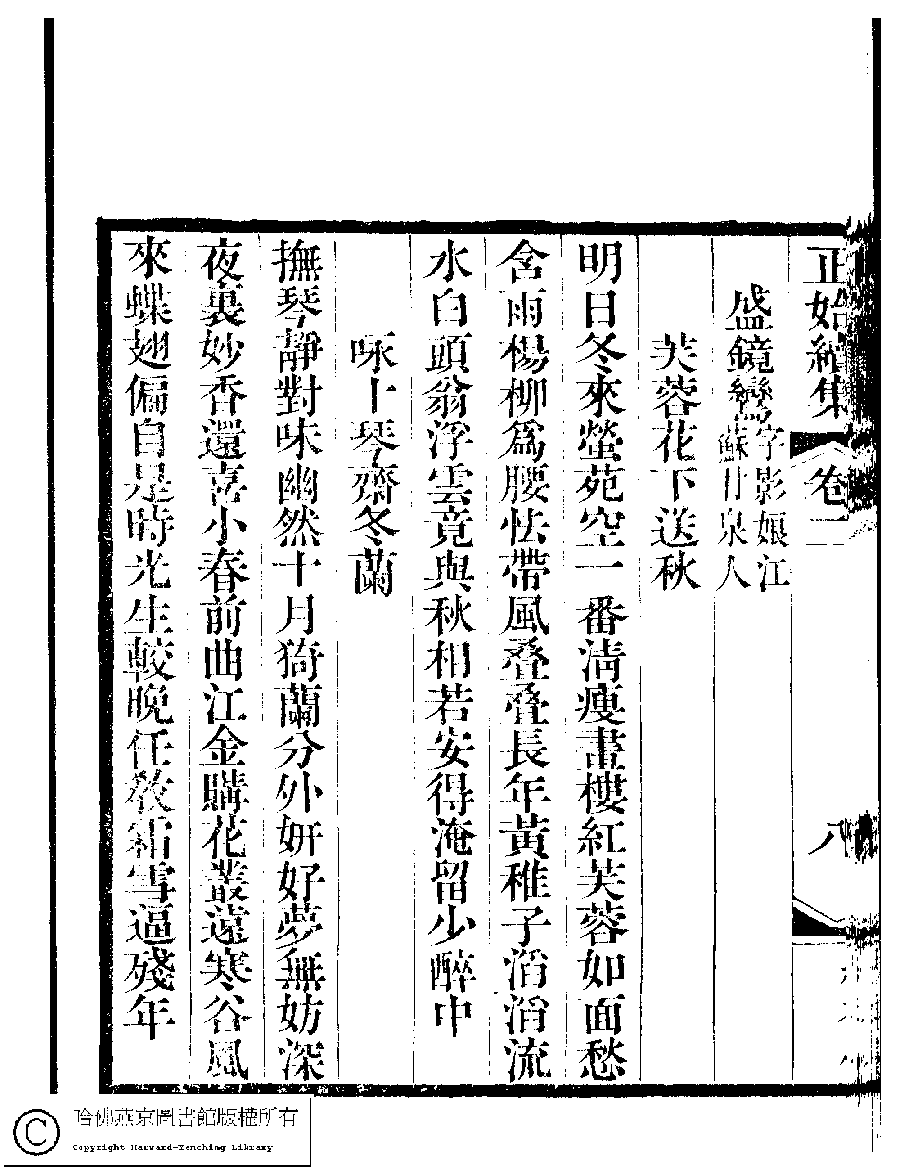 正始續集 卷二 八
盛鏡鸞字影孃江蘇甘泉人
芙蓉花下送秋
明日冬來螢苑空一番淸瘦畫樓紅芙蓉如面愁
含雨楊柳爲腰怯帶風叠叠長年黃稚子滔滔流
水白頭翁浮雲竟與秋相若安得淹留少醉中
咏十琴齋冬蘭
撫琴靜對味幽然十月猗蘭分外妍好夢無妨深
夜裏妙香還喜小春前曲江金購花叢遠寒谷風
來蝶翅偏自是時光生較晚任教霜雪逼殘年
哈佛燕京圖書館版權所有
Copyright Harvard-Yenching Library